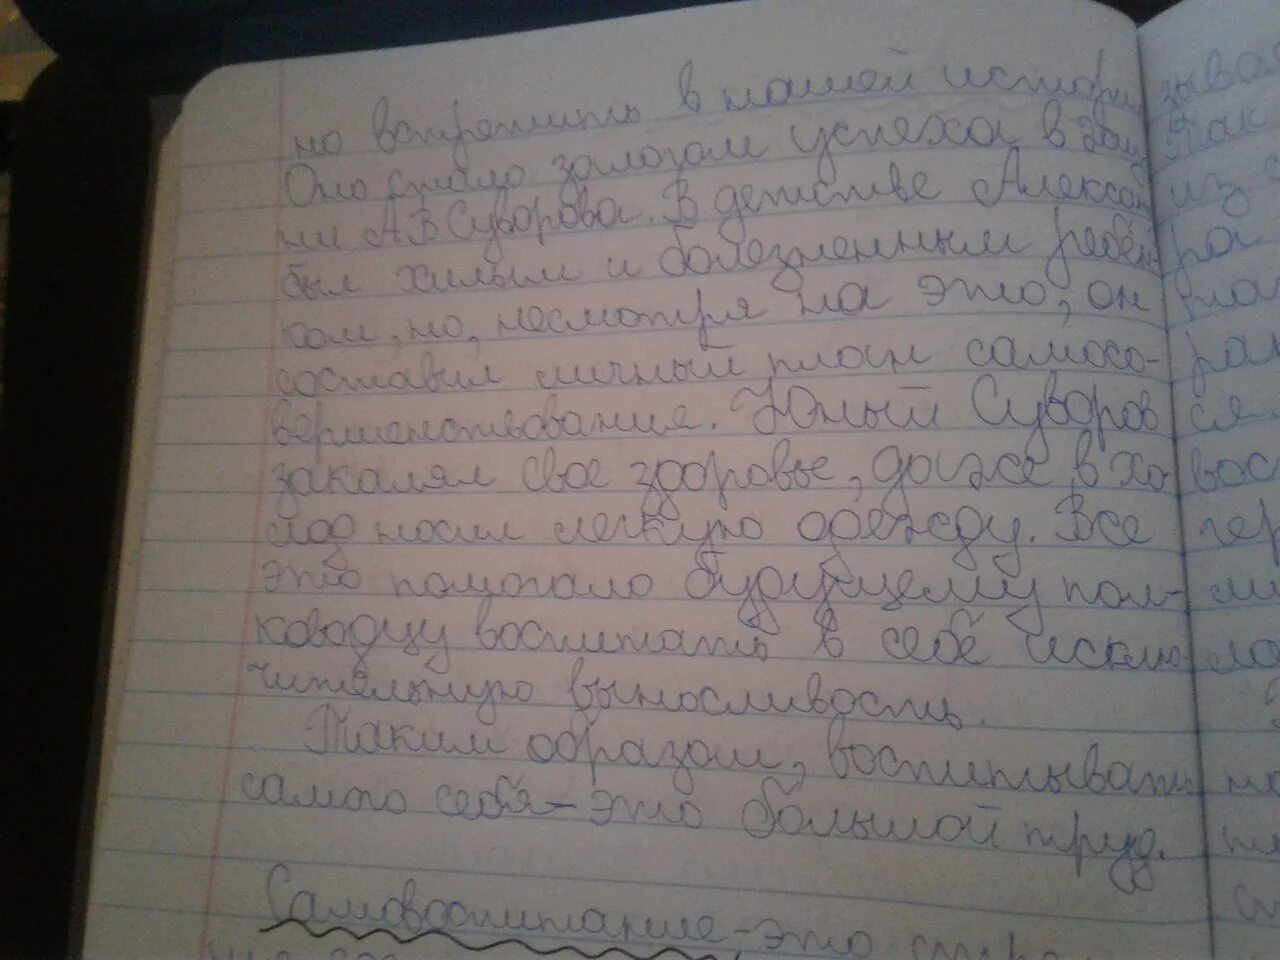 но встретить в нашей истории
Оно стало залогом успеха в
ни А.В Суворова. В детстве Алексан
был хилым и болезненным ребён-
ком, но, несмотря на это, он
составил личный план самосо-
вершенствования. Юный Суворов
закалял свое здоровье, даже в хо-
лод носил легкую одежду. Все
это помогало будущему пол-
ководцу воспитать в себе исклю-
чительную выносливость.
Таким образом, воспитывать
самого себя – это большой труд.
Самовоспитание – это
зыва
так
из
ра
ся
вос